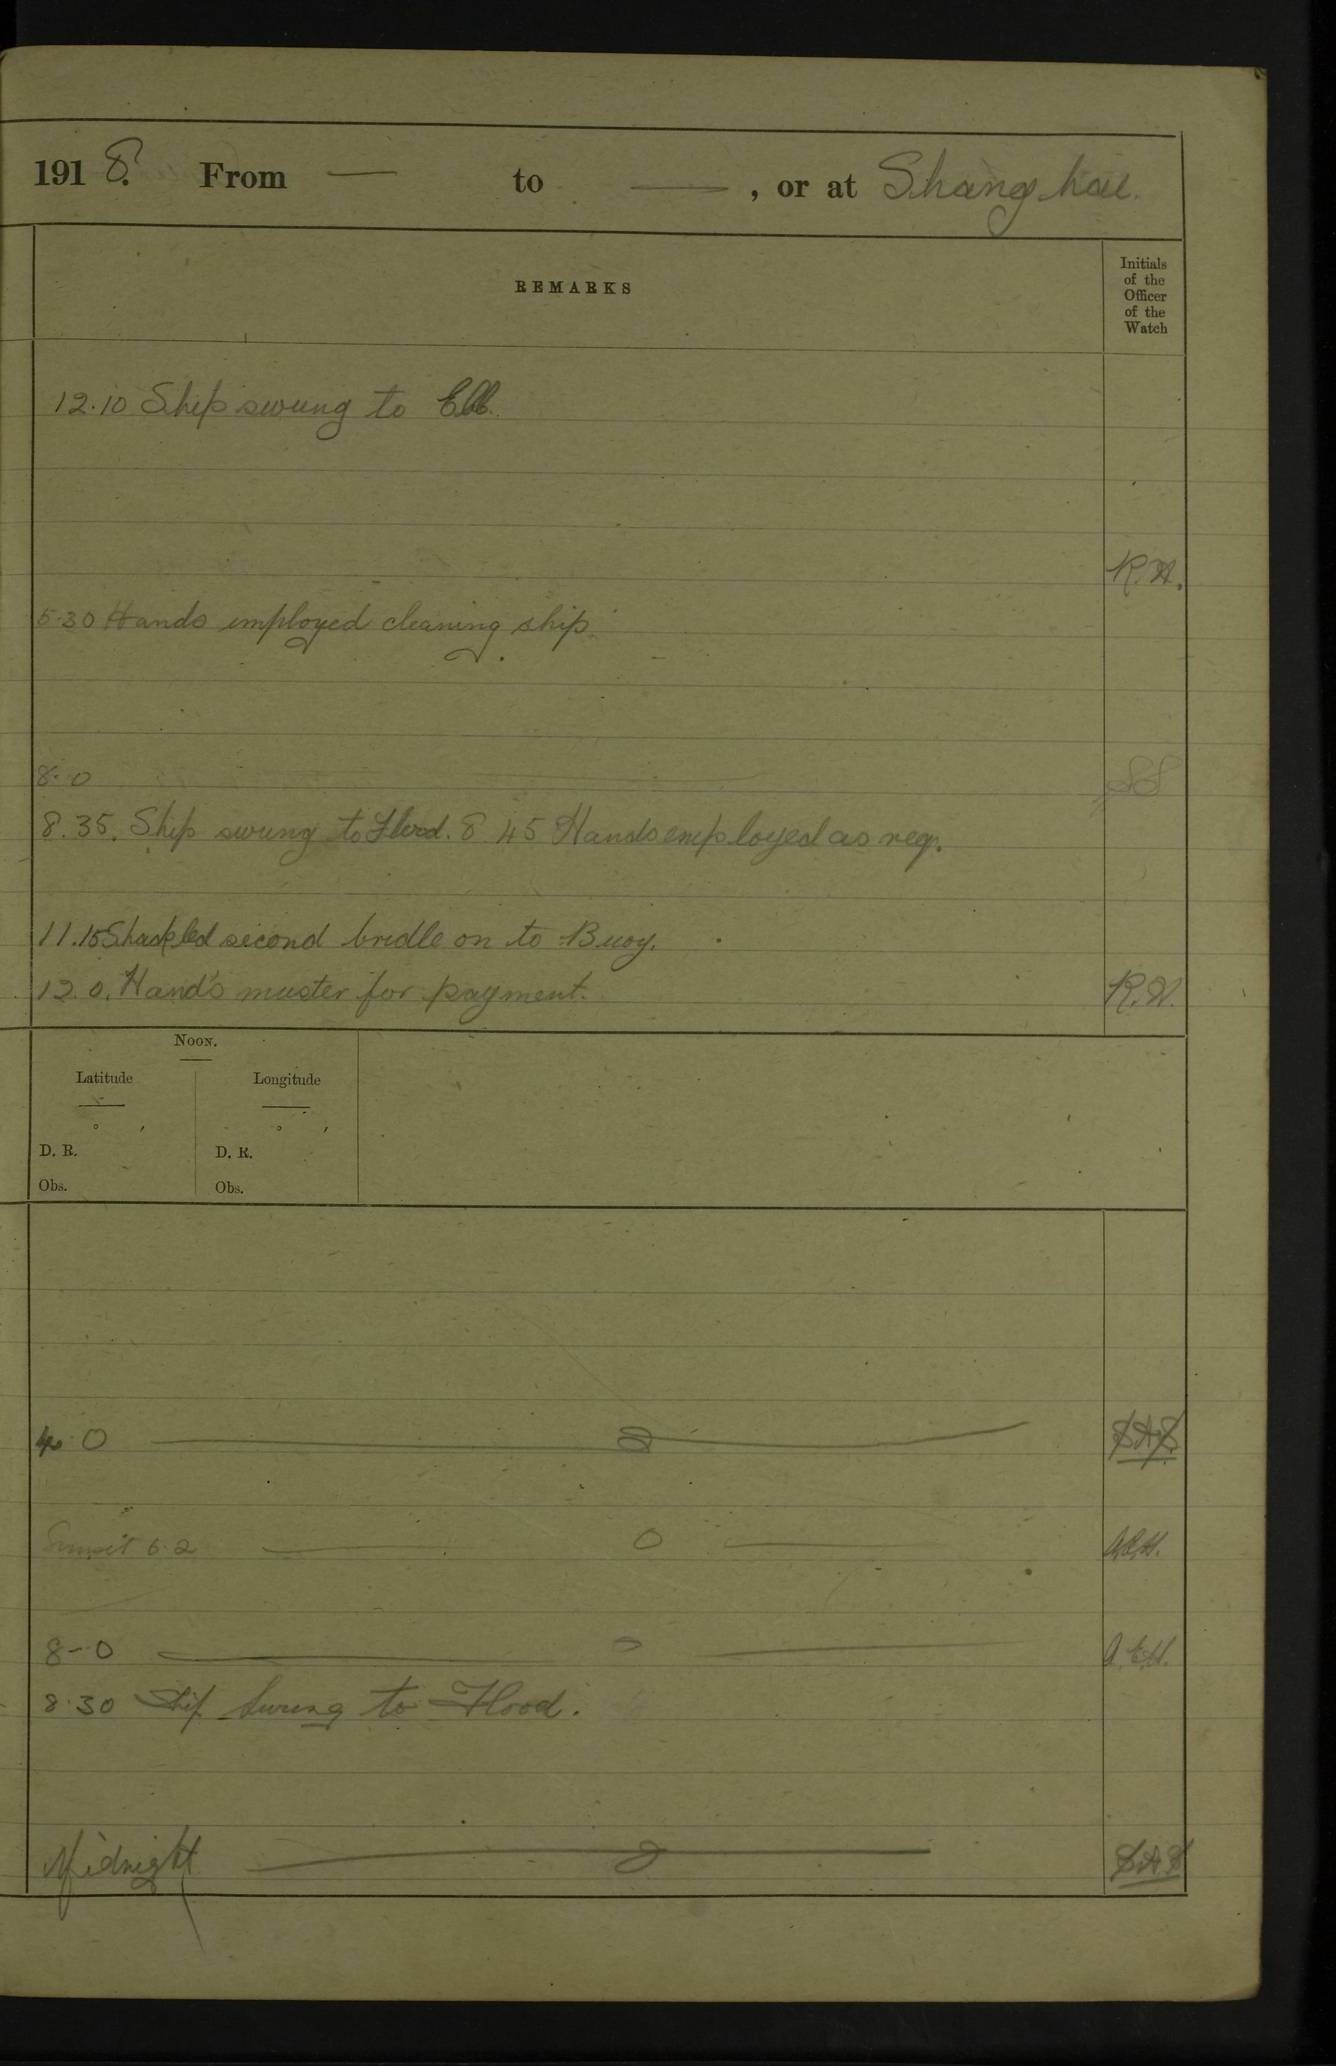 1918. From — to — , or at Shanghai.
REMARKS
Initials
of the
Officer
of the
Watch
12.10 Ship swung to Ebb.
R.H.
5.30 Hands employed cleaning ship.
8.0
8.35. Ship swung to Flood. 8 45 Hands employed as req.
11.15 Shackled second bridle on to Buoy.
12.0. Hands muster for payment. R.H.
Noon.
Latitude Longitude
° ′ ° ′
D. R. D. R.
Obs. Obs.
4.0 SAS
Sunset 6.2 A.E.H.
8-0 A.E.H.
8.30 Ship Swung to Flood.
Midnight SAS